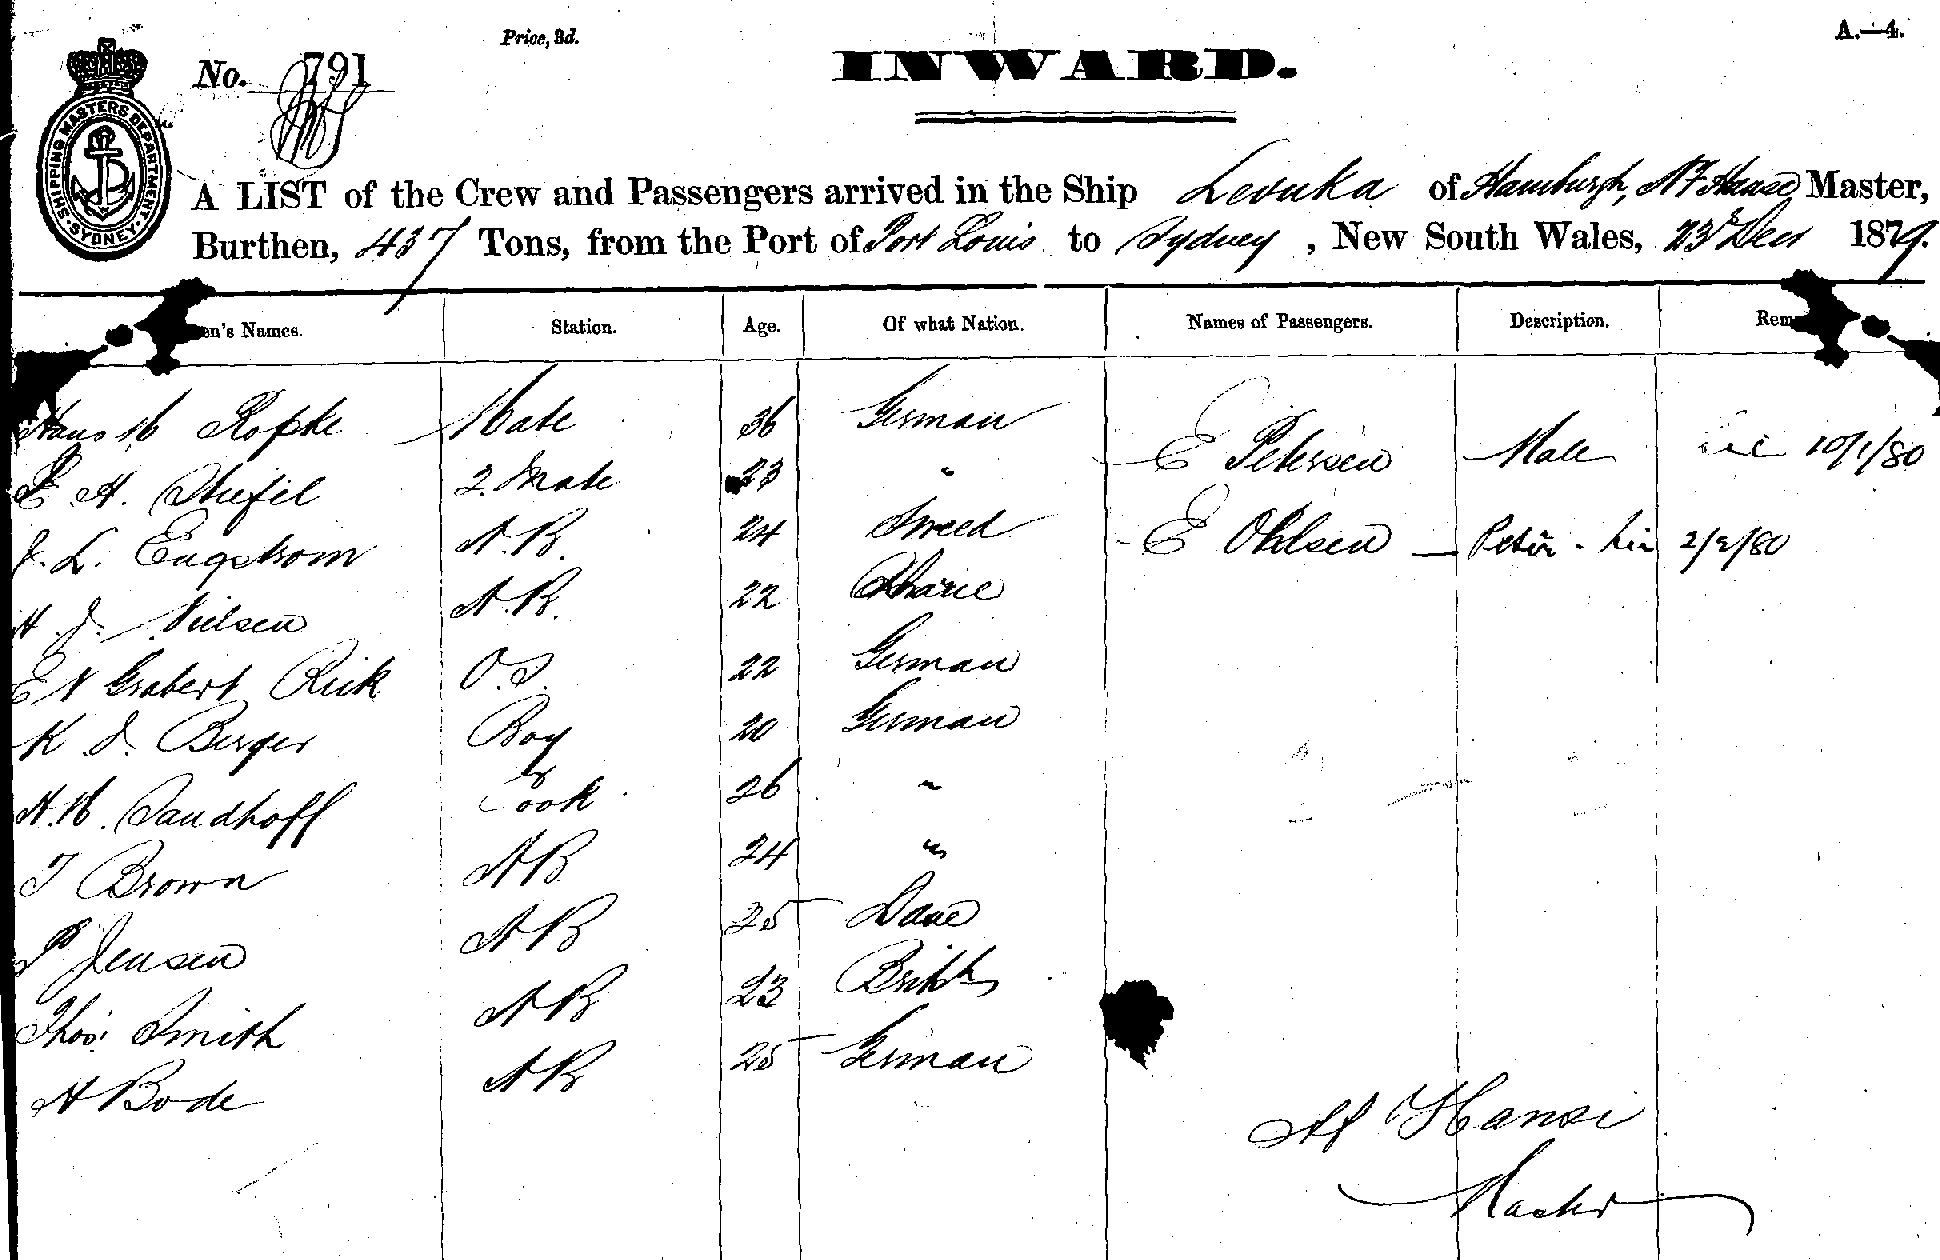 Price, 3d.
A.—4.
No. 791
INWARD.
SHIPPING MASTERS DEPARTMENT. SYDNEY.
A LIST of the Crew and Passengers arrived in the Ship Levuka of Hamburgh, Master,
Burthen, 437 Tons, from the Port of Port Louis to Sydney, New South Wales, 23 Decr 1879.
en's Names. Station. Age. Of what Nation. Names of Passengers. Description. Rem
Hans H Ropke Mate 36 German E Petersen Male 10/1/80
A. 2. Mate 23 "
J. L. Engstrom A.B. 24 Sweed E Ohlsen 2/2/80
H J. Nielsen A.B. 22
E N Grabert Rick O.S. 22 German
K J. Berger Boy 20 German
H. H. Sandhoff Cook 26 "
T Brown AB 24 "
P Jensen AB 25 Dane
Thos. Smith AB 23 British
H Bode AB 25 German
Hansi
Master